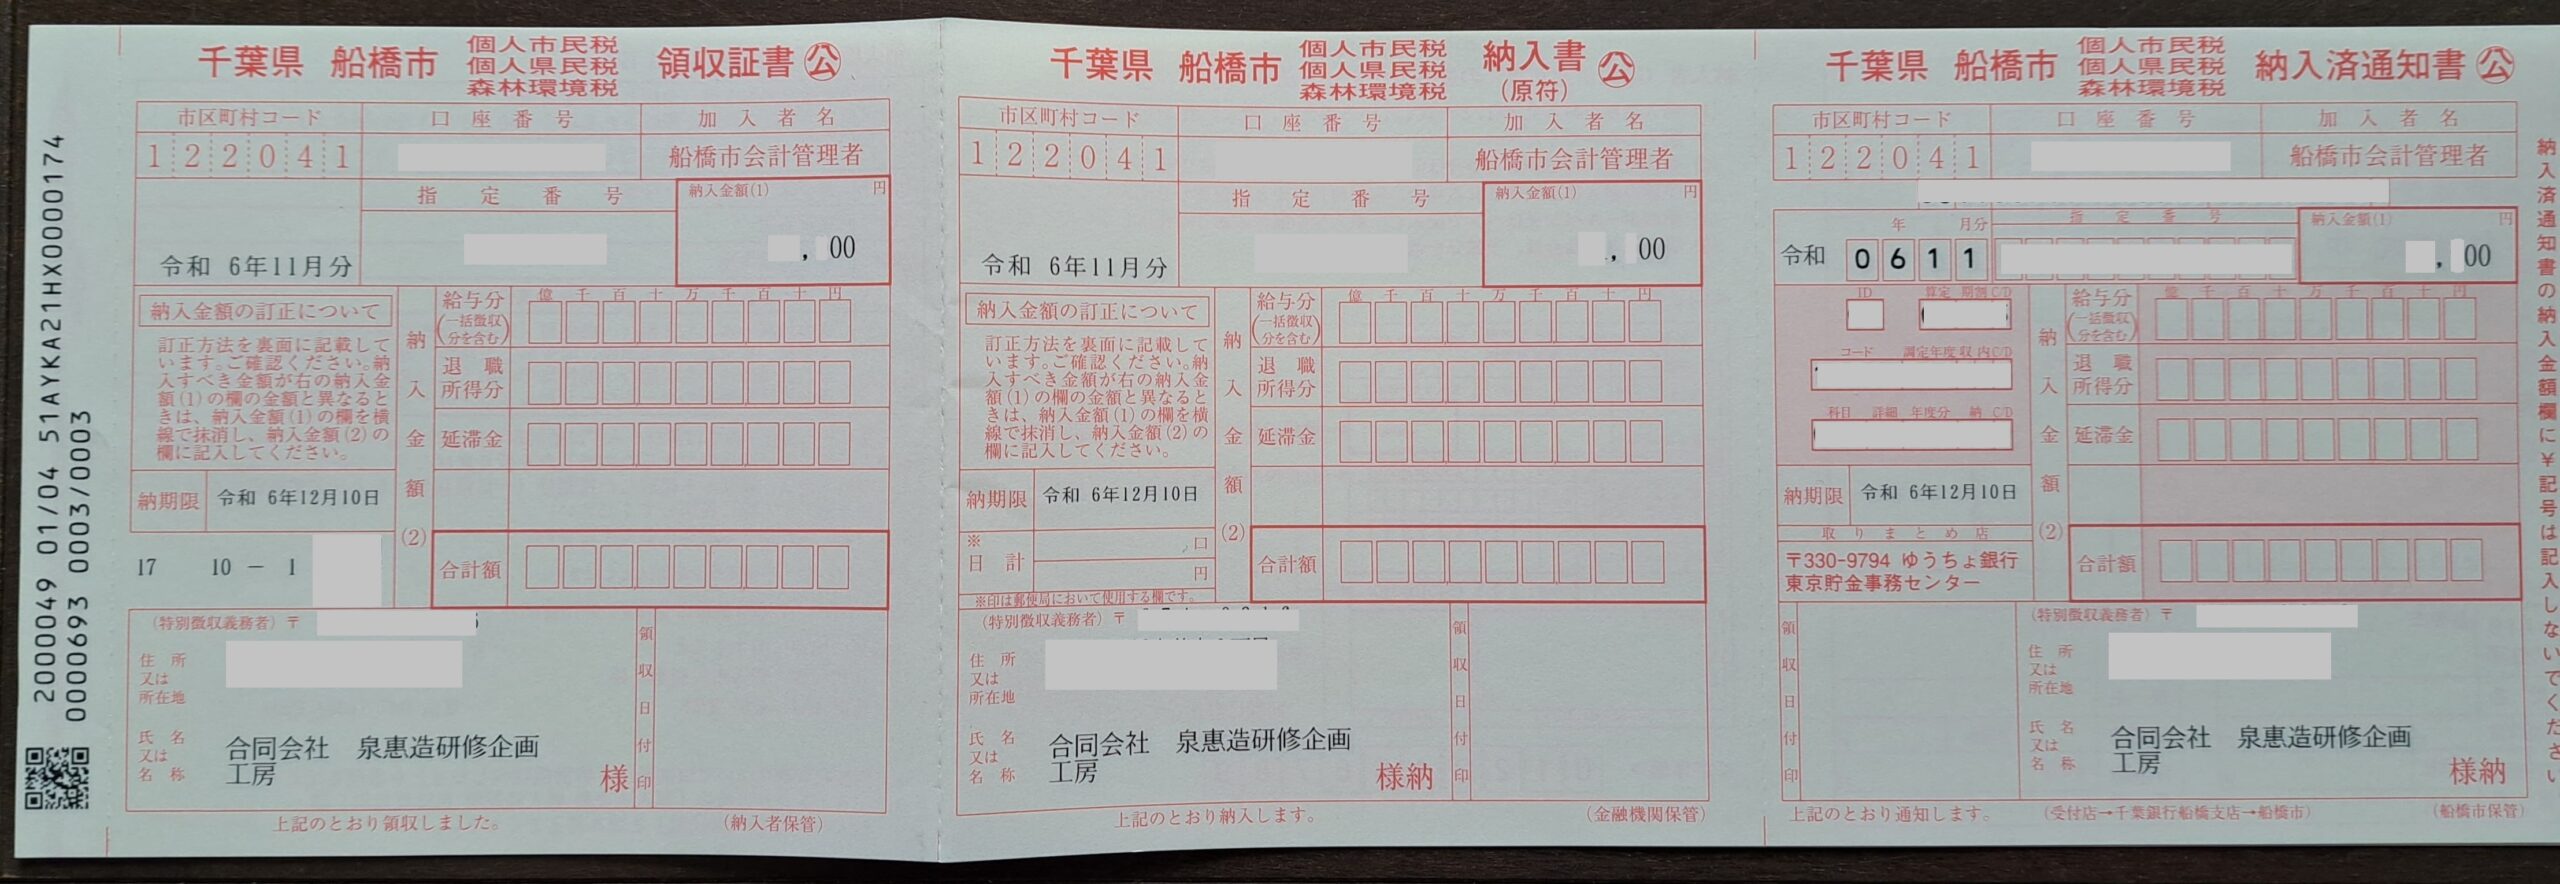 2000049 01/04 51AYKA21HX0000174
0000693 0003/0003
千葉県 船橋市 個人市民税 個人県民税 森林環境税 領収証書 公
市区町村コード 口座番号 加入者名
122041 船橋市会計管理者
指定番号 納入金額(1) 円
令和 6年11月分 , 00
納入金額の訂正について
訂正方法を裏面に記載して
います。ご確認ください。納
入すべき金額が右の納入金
額(1)の欄の金額と異なると
きは、納入金額(1)の欄を横
線で抹消し、納入金額(2)の
欄に記入してください。
納入金額(2)
億千百十万千百十円
給与分
(一括徴収
分を含む)
退職
所得分
延滞金
納期限 令和 6年12月10日
合計額
17 10 - 1
(特別徴収義務者) 〒
住所
又は
所在地
氏名
又は
名称
合同会社 泉惠造研修企画
工房
様
領収日付印
上記のとおり領収しました。 (納入者保管)
千葉県 船橋市 個人市民税 個人県民税 森林環境税 納入書 (原符) 公
市区町村コード 口座番号 加入者名
122041 船橋市会計管理者
指定番号 納入金額(1) 円
令和 6年11月分 , 00
納入金額の訂正について
訂正方法を裏面に記載して
います。ご確認ください。納
入すべき金額が右の納入金
額(1)の欄の金額と異なると
きは、納入金額(1)の欄を横
線で抹消し、納入金額(2)の
欄に記入してください。
納入金額(2)
億千百十万千百十円
給与分
(一括徴収
分を含む)
退職
所得分
延滞金
納期限 令和 6年12月10日
※
日計 口
円
合計額
※印は郵便局において使用する欄です。
(特別徴収義務者) 〒
住所
又は
所在地
氏名
又は
名称
合同会社 泉惠造研修企画
工房
様納
領収日付印
上記のとおり納入します。 (金融機関保管)
千葉県 船橋市 個人市民税 個人県民税 森林環境税 納入済通知書 公
市区町村コード 口座番号 加入者名
122041 船橋市会計管理者
年 月分 指定番号 納入金額(1) 円
令和 0611 , 00
ID 算定 期割 C/D
コード 調定年度 収 内 C/D
科目 詳細 年度分 納 C/D
納入金額(2)
億千百十万千百十円
給与分
(一括徴収
分を含む)
退職
所得分
延滞金
納期限 令和 6年12月10日
取りまとめ店
〒330-9794 ゆうちょ銀行
東京貯金事務センター
合計額
領収日付印
(特別徴収義務者) 〒
住所
又は
所在地
氏名
又は
名称
合同会社 泉惠造研修企画
工房
様納
上記のとおり通知します。 (受付店→千葉銀行船橋支店→船橋市) (船橋市保管)
納入済通知書の納入金額欄に¥記号は記入しないでください